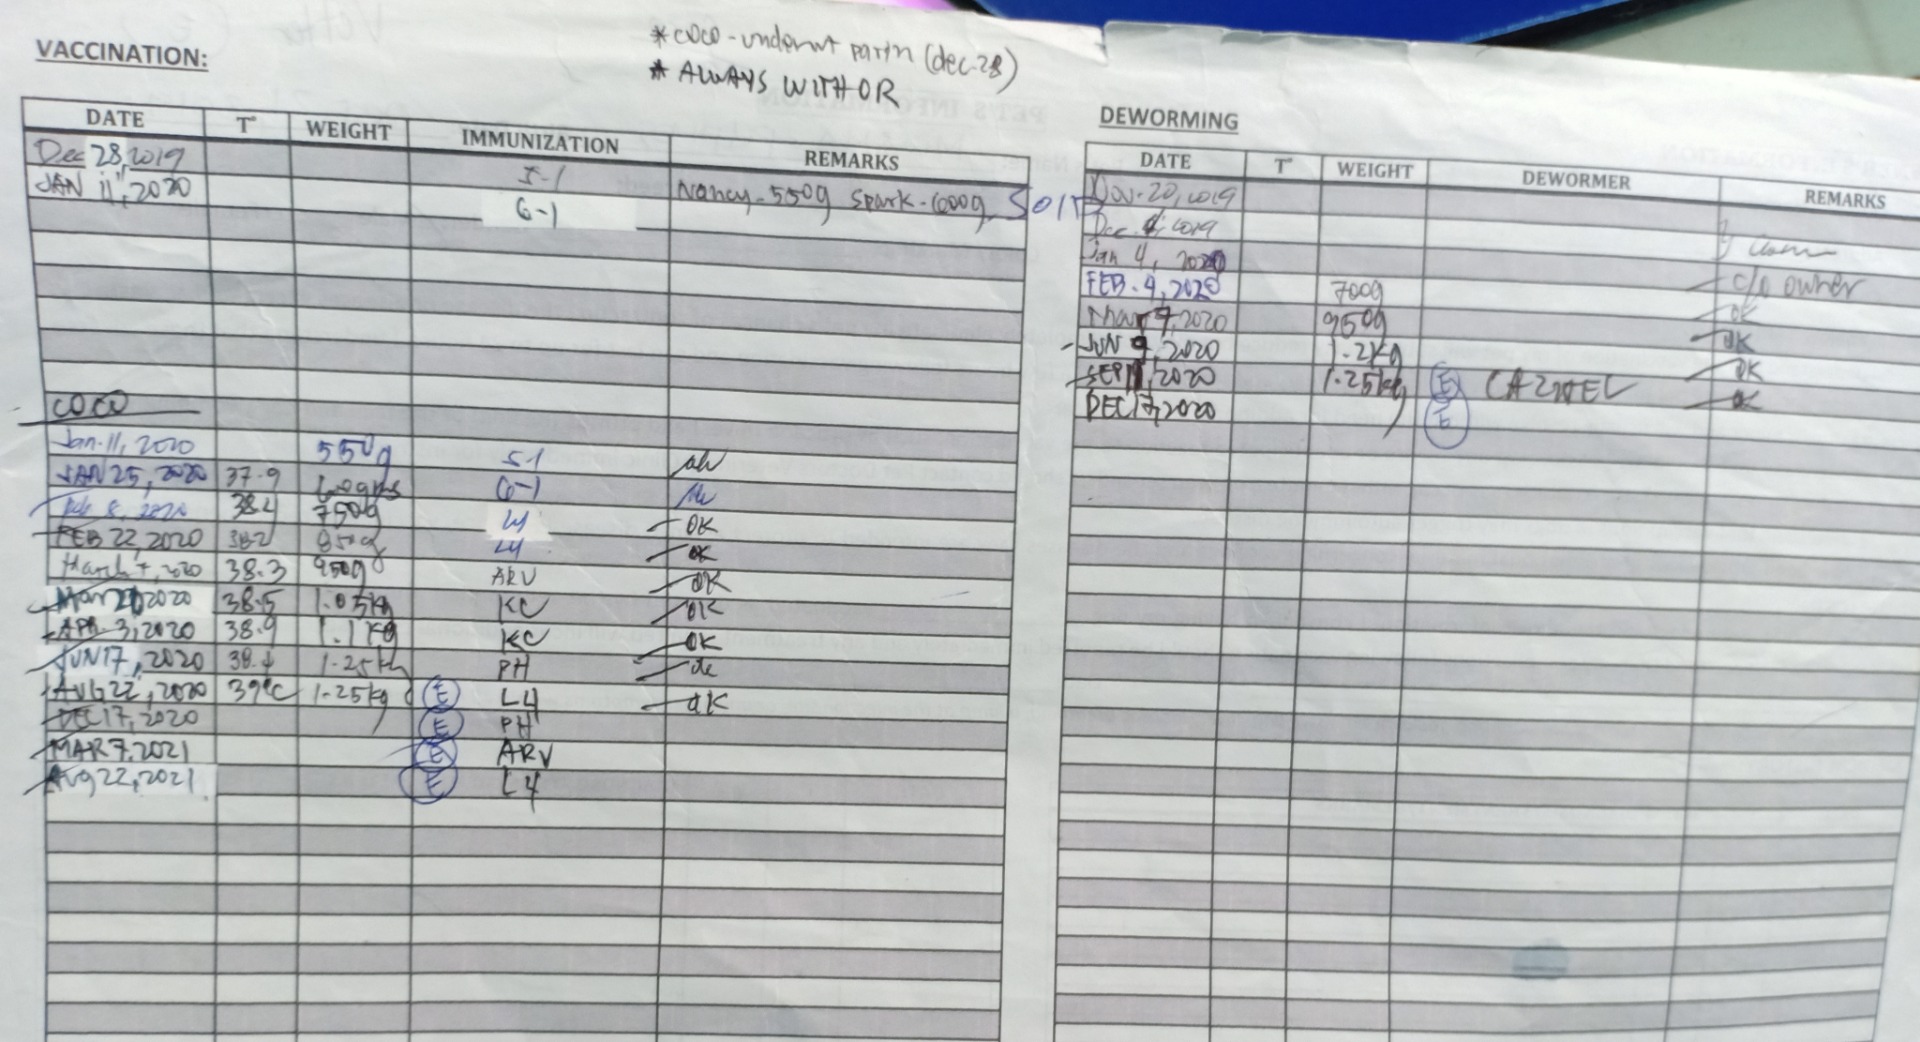 VACCINATION:
*coco-underwt (dec-28)
* ALWAYS WITH OR
DATE T° WEIGHT IMMUNIZATION REMARKS
Dec 28, 2019 5-1 Nancy-550g Spark-600g
JAN 11, 2020 6-1
COCO
Jan. 11, 2020 550g 5-1
JAN 25, 2020 37.9 6-1
Feb 8, 2020 38.4 750g L4 OK
FEB 22, 2020 38.2 850g L4 OK
March 7, 2020 38.3 950g ARV OK
Mar 21 2020 38.5 1.05kg KC OK
APR 3, 2020 38.9 1.1kg KC OK
JUN 17, 2020 38.4 1.25kg PH ok
AUG 22, 2020 39°C 1.25kg E L4 OK
DEC 17, 2020 E PH
MAR 7, 2021 E ARV
Aug 22, 2021 E L4
DEWORMING
DATE T° WEIGHT DEWORMER REMARKS
Nov. 20, 2019
Dec. 2019
Jan 4, 2020 c/o owner
FEB. 4, 2020 700g OK
Mar 7, 2020 950g OK
JUN 9, 2020 1.2kg OK
SEP 2020 1.25kg E OK
DEC 17, 2020 E